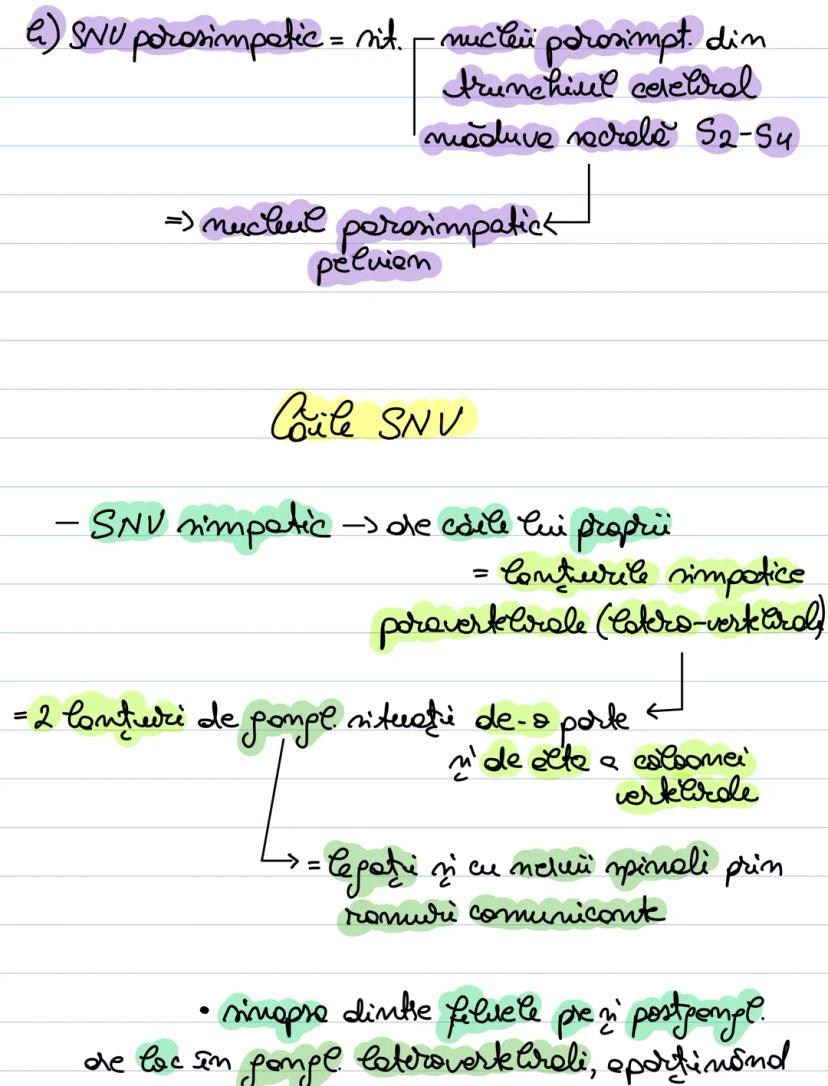 b) SNV parasimpatic = sit. nucleii parasimpt. din
trunchiul cerebral
măduva sacrală S2-S4
=> nucleul parasimpatic
pelvian
Căile SNV
- SNV simpatic -> are căile lui proprii
= lanțurile simpatice
paravertebrale (latero-vertebral)
= 2 lanțuri de gangl. situați de-o parte
și de alta a coloanei
vertebrale
= legați și cu nervii spinali prin
ramuri comunicante
• sinapsa dintre fibrele pre și postgangl.
are loc în gangl. laterovertebrali, aparținând